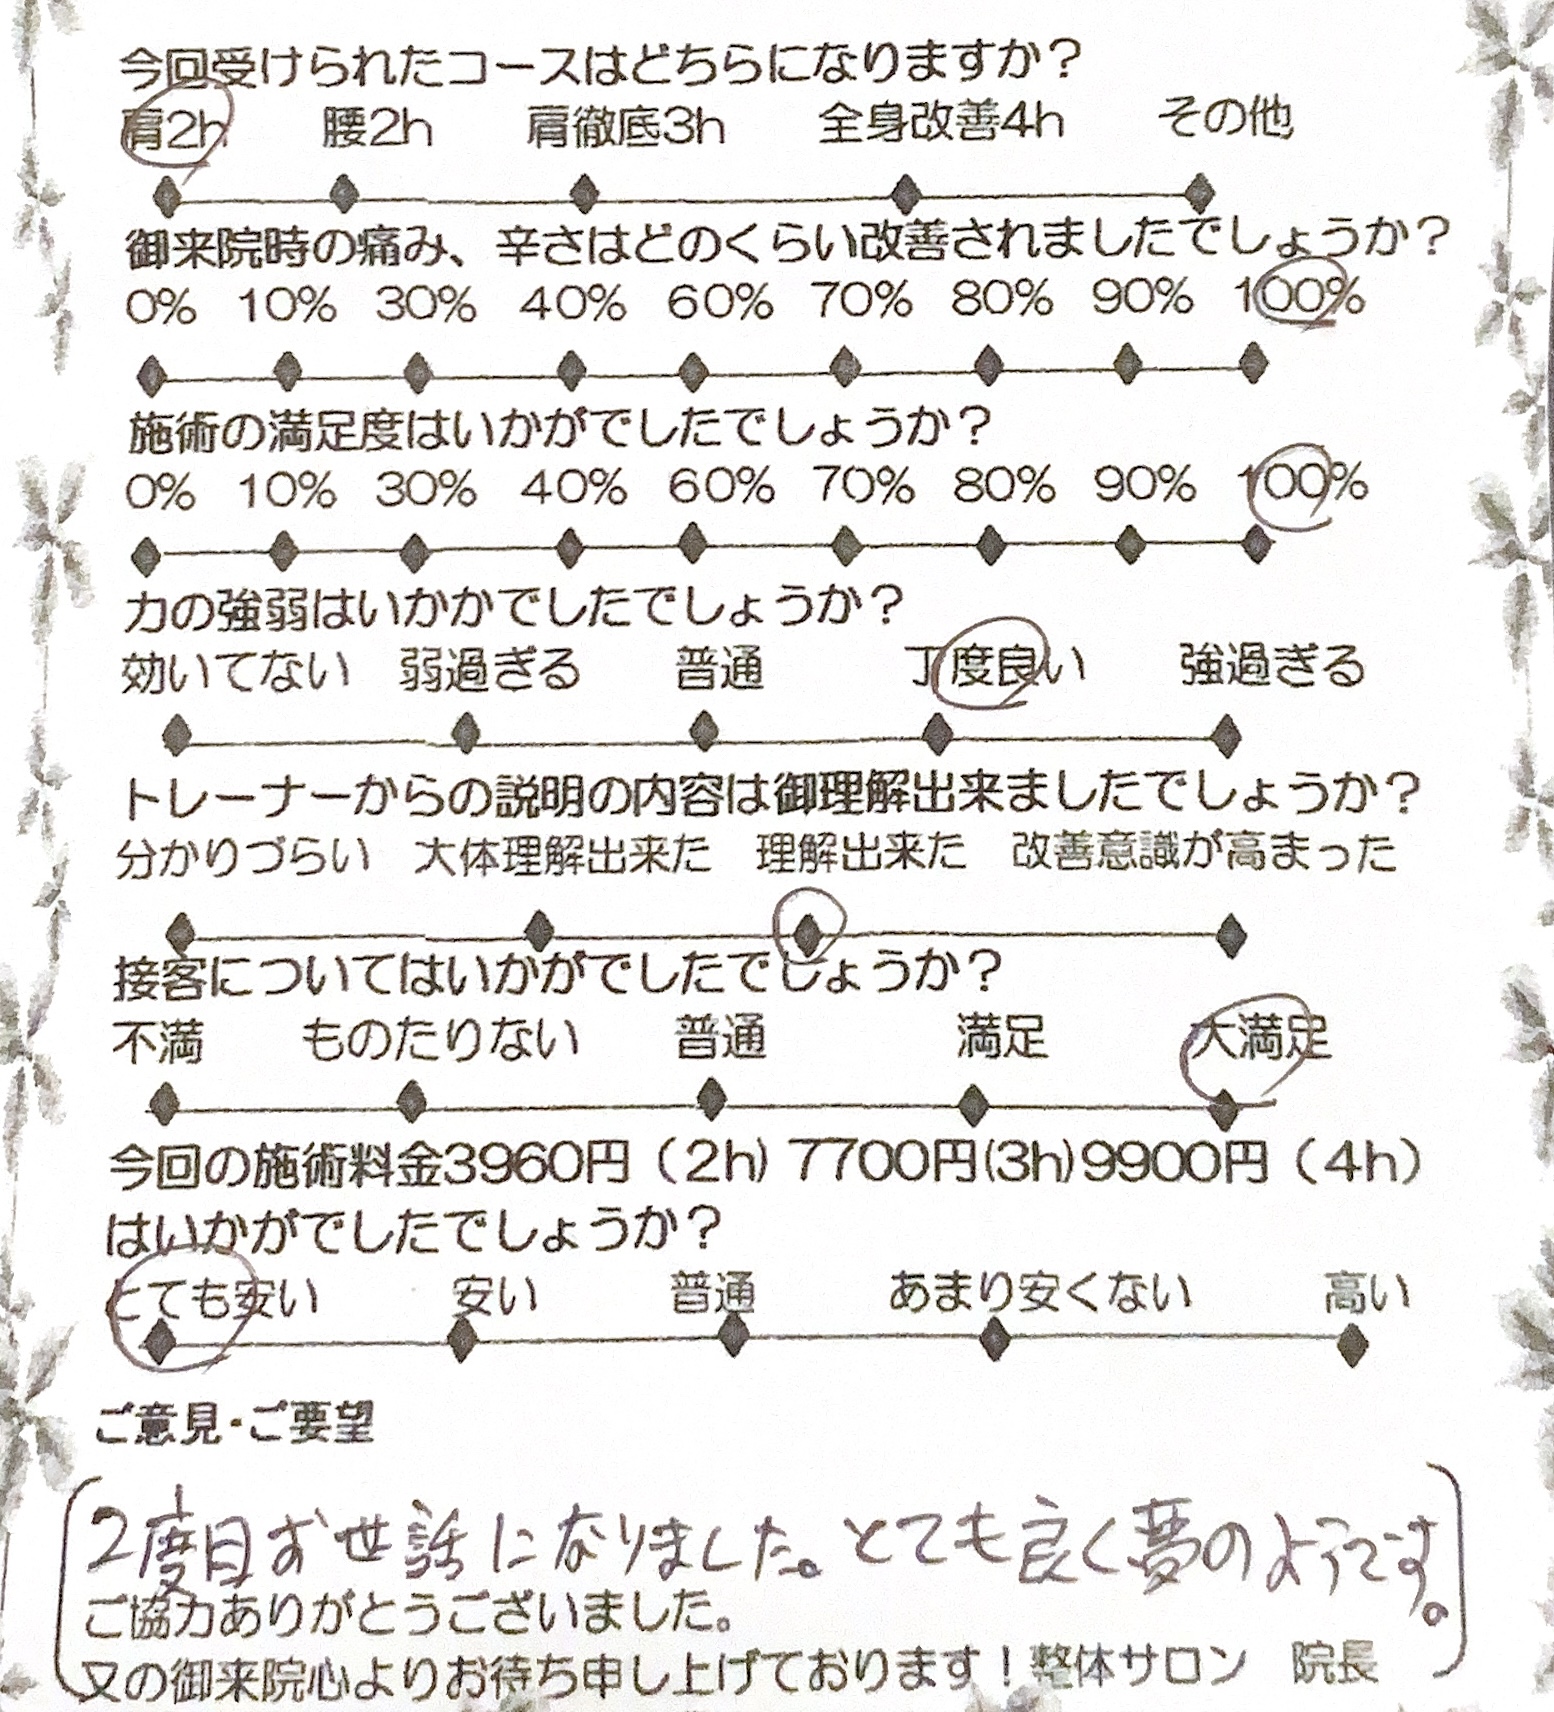 今回受けられたコースはどちらになりますか？
肩2h 腰2h 肩徹底3h 全身改善4h その他
御来院時の痛み、辛さはどのくらい改善されましたでしょうか？
0% 10% 30% 40% 60% 70% 80% 90% 100%
施術の満足度はいかがでしたでしょうか？
0% 10% 30% 40% 60% 70% 80% 90% 100%
力の強弱はいかかでしたでしょうか？
効いてない 弱過ぎる 普通 丁度良い 強過ぎる
トレーナーからの説明の内容は御理解出来ましたでしょうか？
分かりづらい 大体理解出来た 理解出来た 改善意識が高まった
接客についてはいかがでしたでしょうか？
不満 ものたりない 普通 満足 大満足
今回の施術料金3960円（2h）7700円(3h)9900円（4h）
はいかがでしたでしょうか？
とても安い 安い 普通 あまり安くない 高い
ご意見・ご要望
2度目お世話になりました。とても良く夢のようです。
ご協力ありがとうございました。
又の御来院心よりお待ち申し上げております！整体サロン 院長